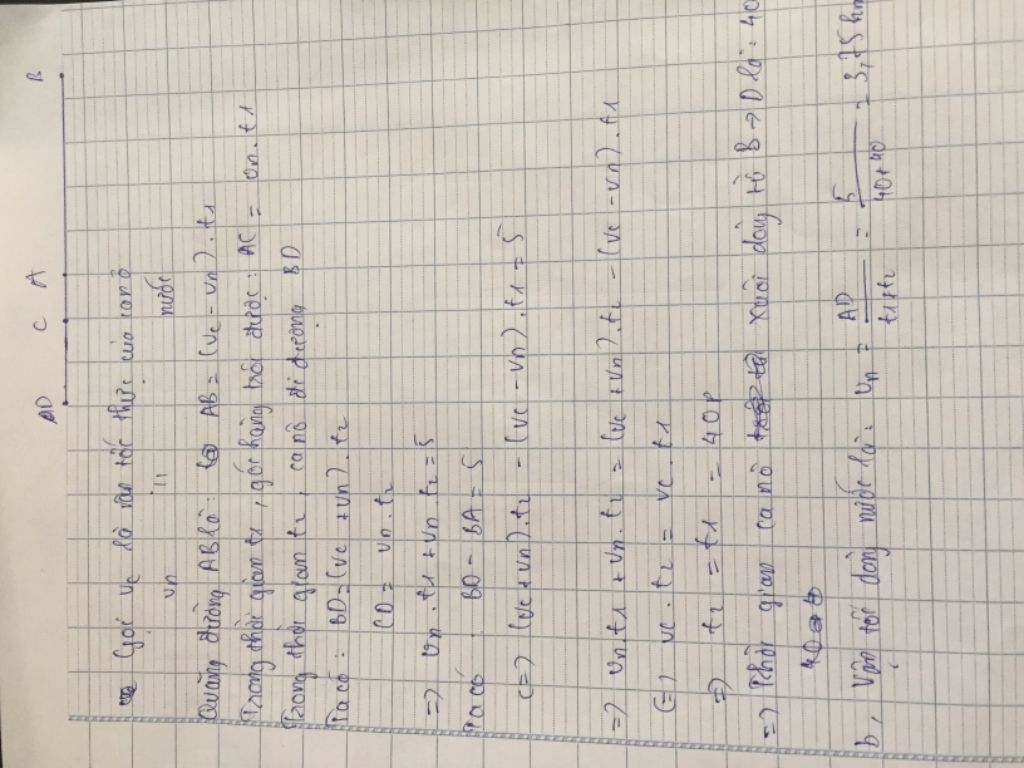 D C A B
Gọi vc là vận tốc thực của canô
vn " nước
Quãng đường AB là: AB = (vc - vn).t1
Trong thời gian t1, gói hàng trôi được: AC = vn.t1
Trong thời gian t2, canô đi đường BD
Ta có: BD = (vc + vn).t2
CD = vn.t2
=> vn.t1 + vn.t2 = 5
Ta có BD - BA = 5
(=) (vc + vn).t2 - (vc - vn).t1 = 5
=> vn.t1 + vn.t2 = (vc + vn).t2 - (vc - vn).t1
(=) vc.t2 = vc.t1
=> t2 = t1 = 40p
=> Thời gian canô xuôi dòng từ B -> D là: 40
b, Vận tốc dòng nước là: vn = AD / t1+t2 = 5 / 40+40 = 3,75 km